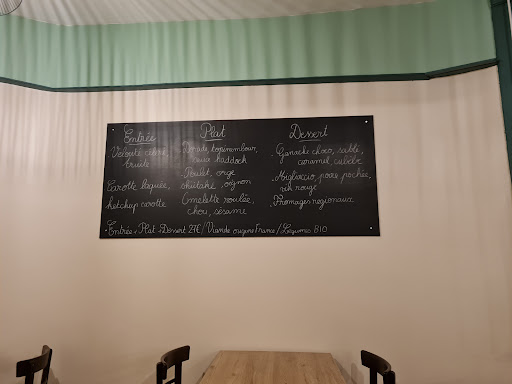 Entrée
Velouté céleri,
truite
Carotte laquée,
ketchup carotte
Plat
Dorade, topinambour,
haddock
Poulet, orge
shiitaké, oignon
Omelette roulée,
chou, sésame
Dessert
Ganache choco, sablé,
caramel, cubèbe
Migliaccio, poire pochée,
vin rouge
Fromages régionaux
Entrée + Plat + Dessert 27€ / Viande origine France / Légumes BIO